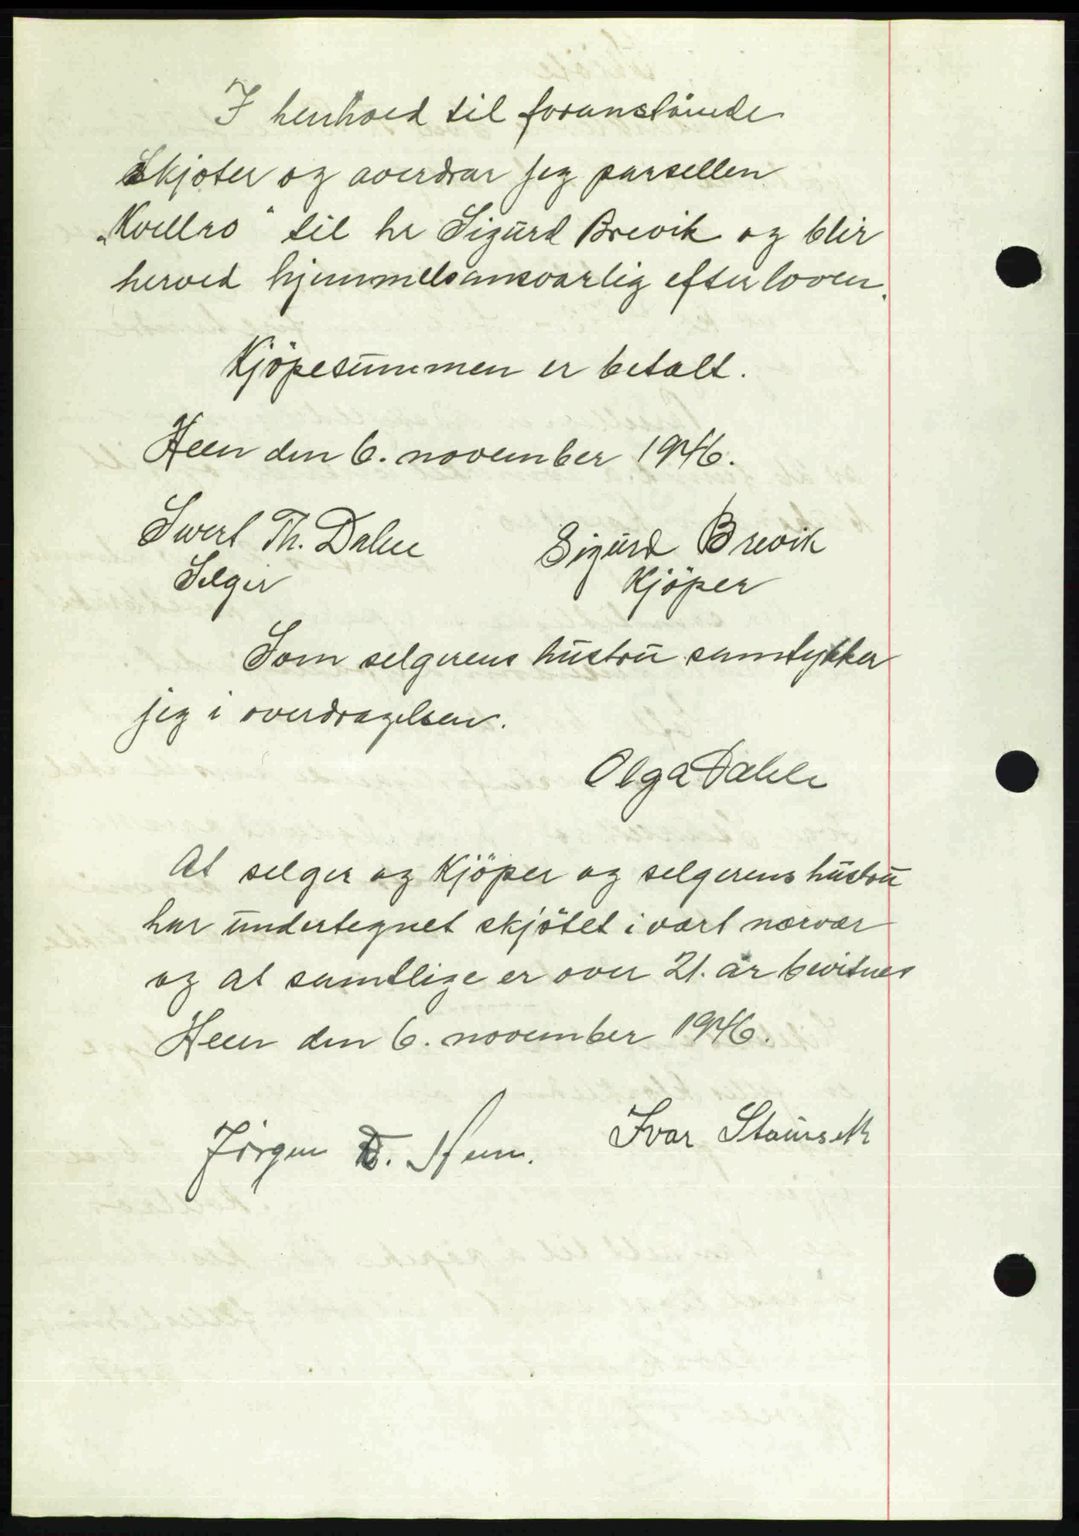 I henhoed til foranstående
skjøter og averdrar jeg parsellen
„Kvellro“ til hr Sigurd Brevik og blir
herved hjemmelsansvarlig efter loven.
Kjöpesummen er betalt.
Heen den 6. november 1946.
Sivert Th. Dahle Sigurd Brevik
Selger Kjöper
Som selgerens hustru samtykker
jeg i overdragelsen.
Olga Dahle
At selger og Kjöper og selgerens hustru
har undertegnet skjötet i vart nærvær
og at samtlige er over 21. år bevitnes
Heen den 6. november 1946.
Jörgen D. Heen. Ivar Staurseth